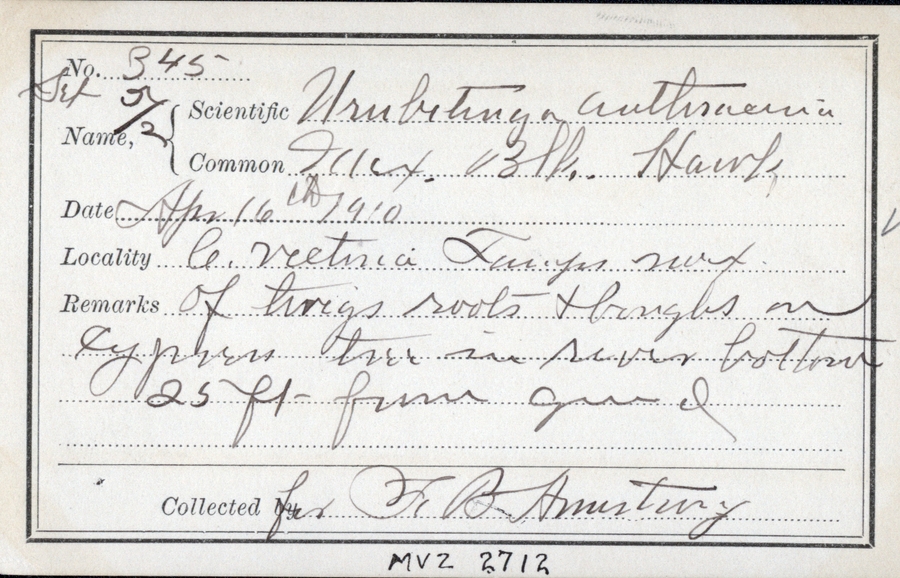 No. 345
Set 5/2
Name, { Scientific Urubitinga anthracina
Common Mex. Blk. Hawk
Date Apr 16th 1910
Locality C. Victoria Tamps mex.
Remarks Of twigs roots & boughs on
cypress tree in river bottom
25 ft from ground
Collected by for F. B. Armstrong
MVZ 2712